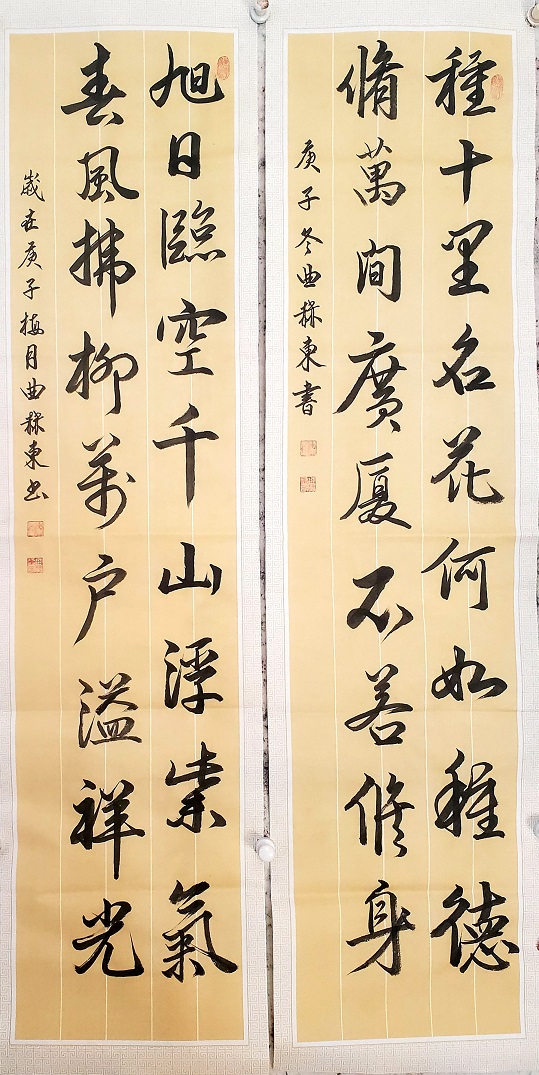 種十里名花何如種德
脩萬间廣厦不若修身
庚子冬曲稼東書
旭日臨空千山浮紫氣
春風拂柳萬户溢祥光
歲在庚子梅月曲稼東书